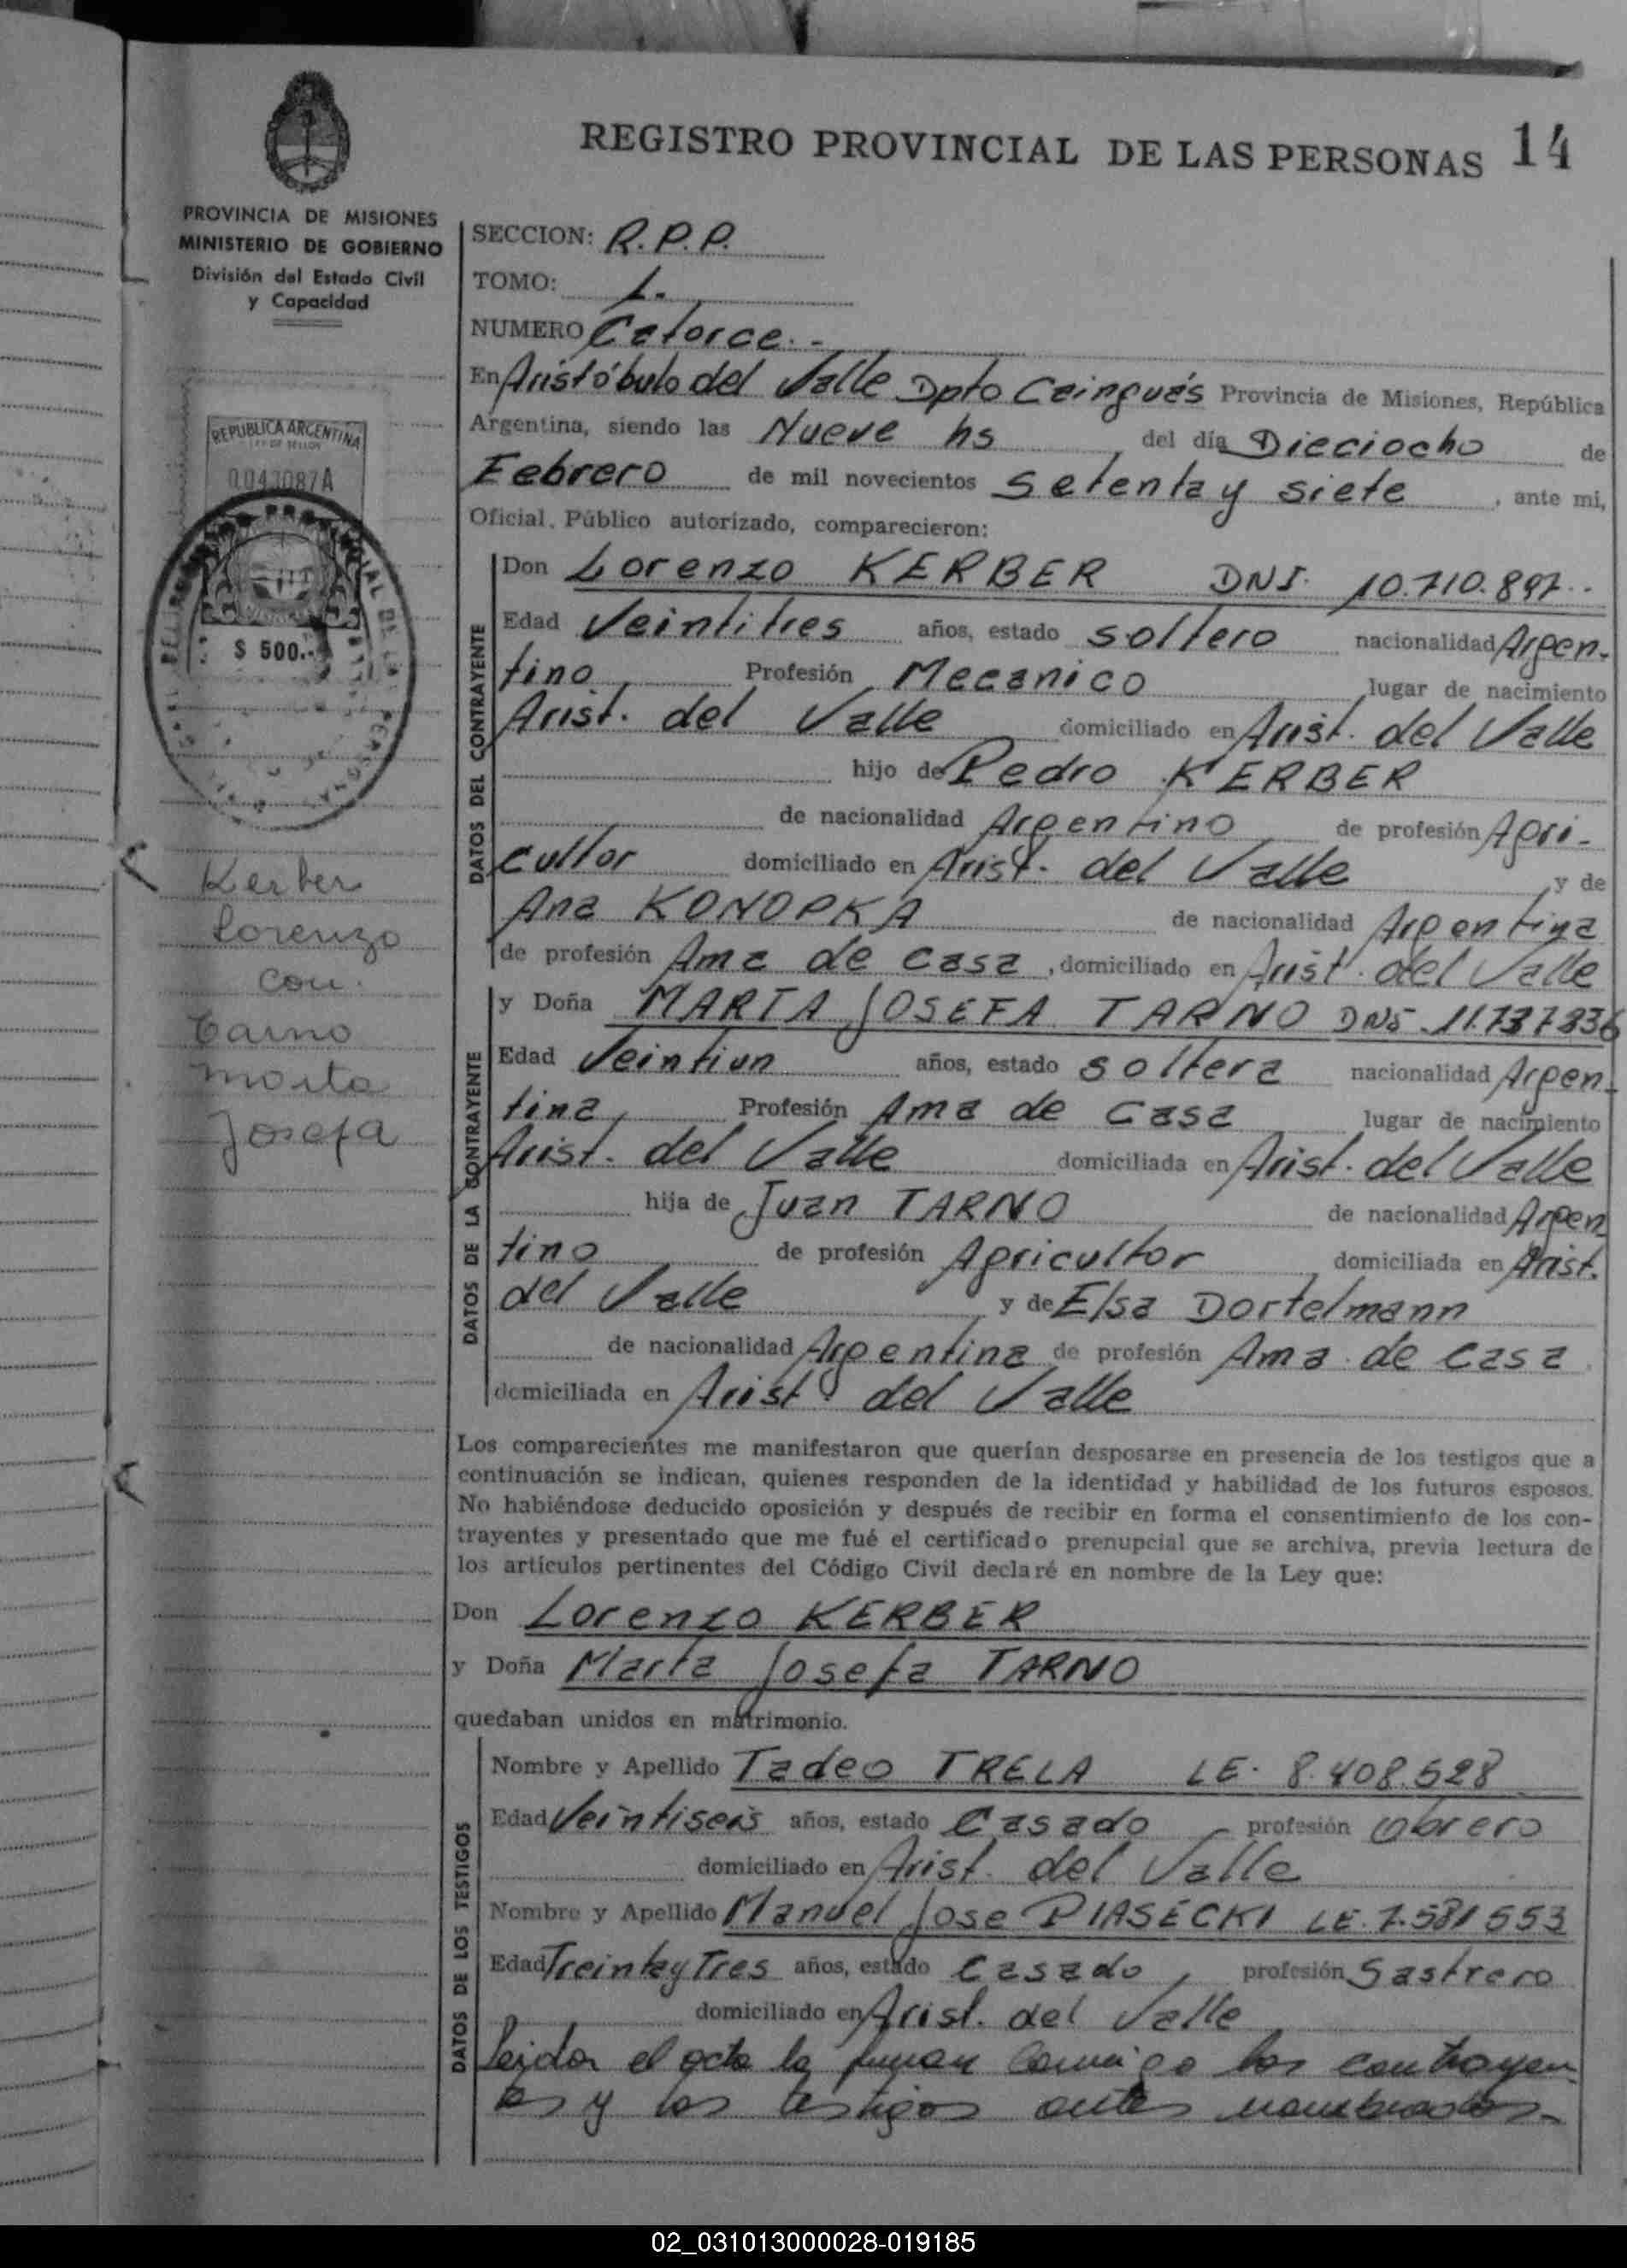 REGISTRO PROVINCIAL DE LAS PERSONAS 14
PROVINCIA DE MISIONES
MINISTERIO DE GOBIERNO
División del Estado Civil
y Capacidad
REPUBLICA ARGENTINA
LEY DE SELLOS
0043087A
$ 500.-
Kerber
Lorenzo
con
Tarno
Marta
Josefa
SECCION: R.P.P.
TOMO: 1.-
NUMERO Catorce.-
En Aristóbulo del Valle Dpto Caingués Provincia de Misiones, República
Argentina, siendo las Nueve hs del día Dieciocho de
Febrero de mil novecientos Setenta y siete, ante mi,
Oficial Público autorizado, comparecieron:
DATOS DEL CONTRAYENTE
Don Lorenzo KERBER DNI. 10.710.897..
Edad Veintitres años, estado soltero nacionalidad Argen-
tino Profesión Mecanico lugar de nacimiento
Arist. del Valle domiciliado en Arist. del Valle
hijo de Pedro KERBER
de nacionalidad Argentino de profesión Agri-
cultor domiciliado en Arist. del Valle y de
Ana KONOPKA de nacionalidad Argentina
de profesión Ama de casa, domiciliado en Arist. del Valle
DATOS DE LA CONTRAYENTE
y Doña MARTA JOSEFA TARNO DNI. 11.737836
Edad Veintiun años, estado soltera nacionalidad Argen-
tina, Profesión Ama de casa lugar de nacimiento
Arist. del Valle domiciliada en Arist. del Valle
hija de Juan TARNO de nacionalidad Argen
tino de profesión Agricultor domiciliada en Arist.
del Valle y de Elsa Dortelmann
de nacionalidad Argentina de profesión Ama de casa
domiciliada en Arist. del Valle
Los comparecientes me manifestaron que querían desposarse en presencia de los testigos que a
continuación se indican, quienes responden de la identidad y habilidad de los futuros esposos.
No habiéndose deducido oposición y después de recibir en forma el consentimiento de los con-
trayentes y presentado que me fué el certificado prenupcial que se archiva, previa lectura de
los artículos pertinentes del Código Civil declaré en nombre de la Ley que:
Don Lorenzo KERBER
y Doña Marta Josefa TARNO
quedaban unidos en matrimonio.
DATOS DE LOS TESTIGOS
Nombre y Apellido Tadeo TRELA LE. 8.408.528
Edad Veintiseis años, estado Casado profesión Obrero
domiciliado en Arist. del Valle
Nombre y Apellido Manuel Jose PIASECKI LE. 7.581553
Edad Treinta y Tres años, estado Casado, profesión Sastrero
domiciliado en Arist. del Valle
Leida el acta la firman conmigo los contrayen
tes y los testigos antes nombrados.-
02_031013000028-019185